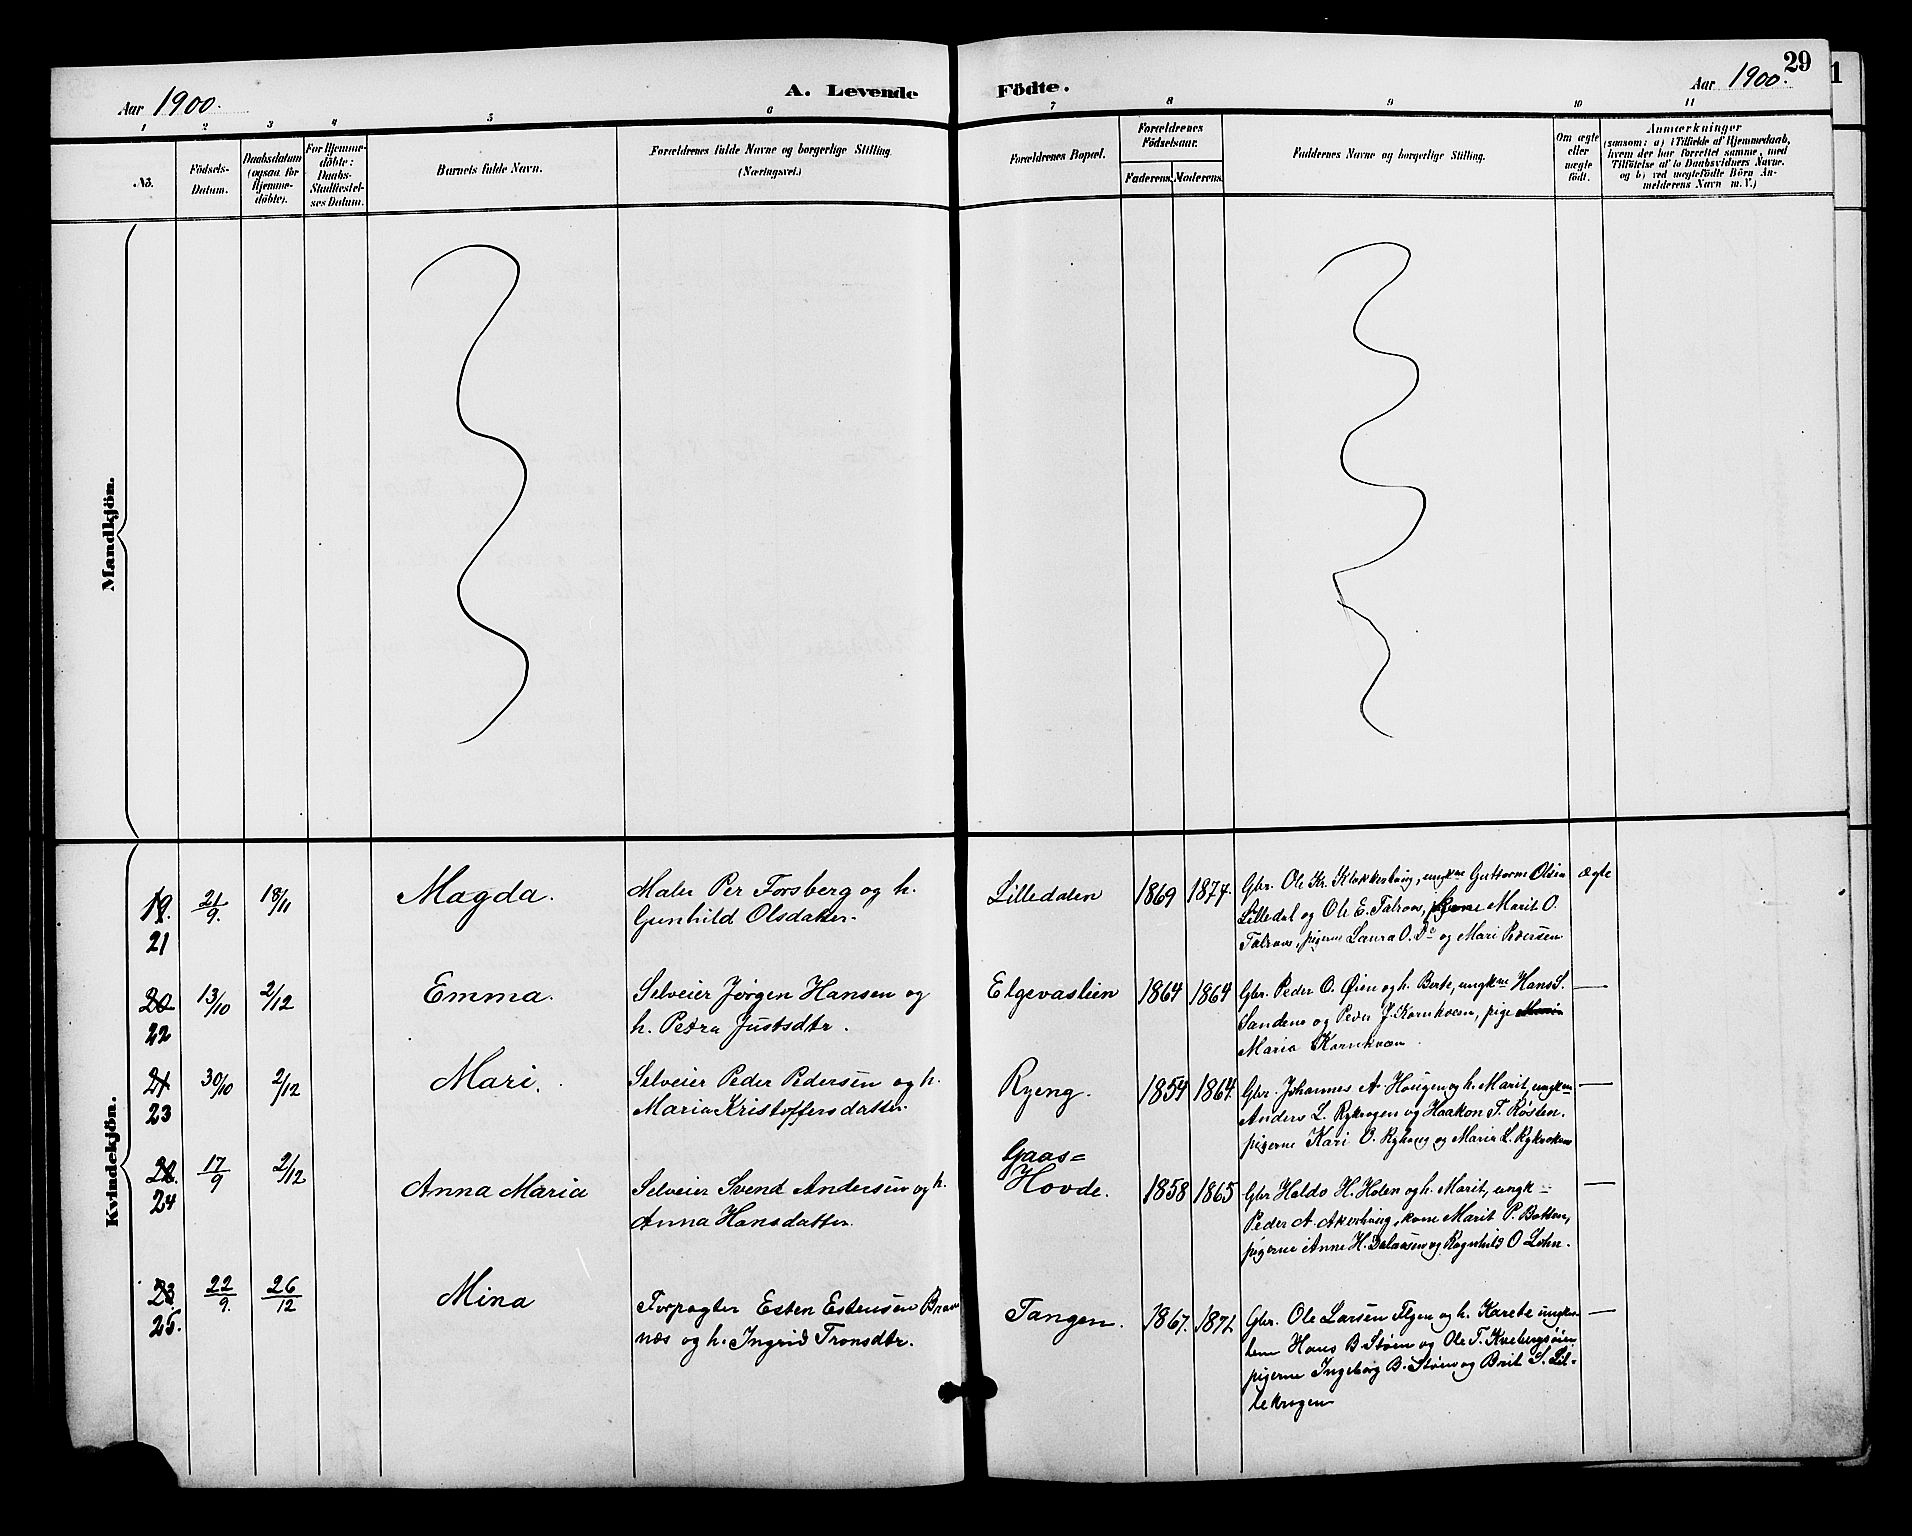 29
1
Aar 1900.
A. Levende Födte.
Aar 1900.
1 2 3 4 5 6 7 8 9 10 11
No.
Födsels-
Datum.
Daabsdatum
(ogsaa for
Hjemme-
döbte).
For Hjemme-
döbte:
Daabs-
Stadfæstel-
ses Datum.
Barnets fulde Navn.
Forældrenes fulde Navne og borgerlige Stilling.
(Næringsvei.)
Forældrenes Bopæl.
Forældrenes
Födselsaar.
Faderens. Moderens.
Faddernes Navne og borgerlige Stilling.
Om ægte
eller
uægte
født.
Anmærkninger
(saasom: a) i Tilfælde af Hjemmedaab,
hvem der har forrettet samme, med
Tilföielse af to Daabsvidners Navne,
og b) ved uægtefödte Börn An-
melderens Navn m. V.)
Mandkjön.
Kvindekjön.
19.
21
21/9.
18/11
Magda.
Maler Per Forsberg og h.
Gunhild Olsdatter.
Lilledalen
1869
1874.
Gbr. Ole Kr. Klokkerhaug, ungkne Guttorm Olsen
Lilledal og Ole E. Talraas, Marit O.
Talraas, pigerne Laura O. Do og Mari Pedersen
Ægte
20
22
13/10
2/12
Emma.
Selveier Jørgen Hansen og
h. Petra Justsdtr.
Elgevaslien
1864
1864
Gbr. Peder O. Øien og h. Berte, ungkne Hans S.
Sandens og Peder J. Kornhoen, pige
Maria Kornhoen.
—
21
23
30/10
2/12
Mari.
Selveier Peder Pedersen og h.
Maria Kristoffersdatter.
Ryeng.
1854
1864.
Gbr. Johannes A. Hougen og h. Marit, ungkne
Anders L. Rykrogen og Haakon T. Røsten.
pigerne Kari O. Ryhaug og Marie L. Rykroken
—
22.
24
17/9
2/12
Anna Maria
Selveier Svend Andersen og h.
Anna Hansdatter.
Gaas=
Hovde.
1858
1865
Gbr Haldo H. Holen og h. Marit, ungk-
Peder A. Akerhaug, kone Marit P. Botten,
pigerne Anne H. Dalaasen og Ragnhild O Lohn.
—
23.
25.
22/9.
26/12
Mina
Forpagter Esten Estensen Bræn
næs og h. Ingrid Tronsdtr.
Tangen.
1867.
1871.
Gbr. Ole Larsen Elgen og h. Karete ungkar
lene Hans B. Støen og Ole T. Kvebergsøien
pigerne Ingeborg B. Støen og Brit S. Lil-
lekrogen
—